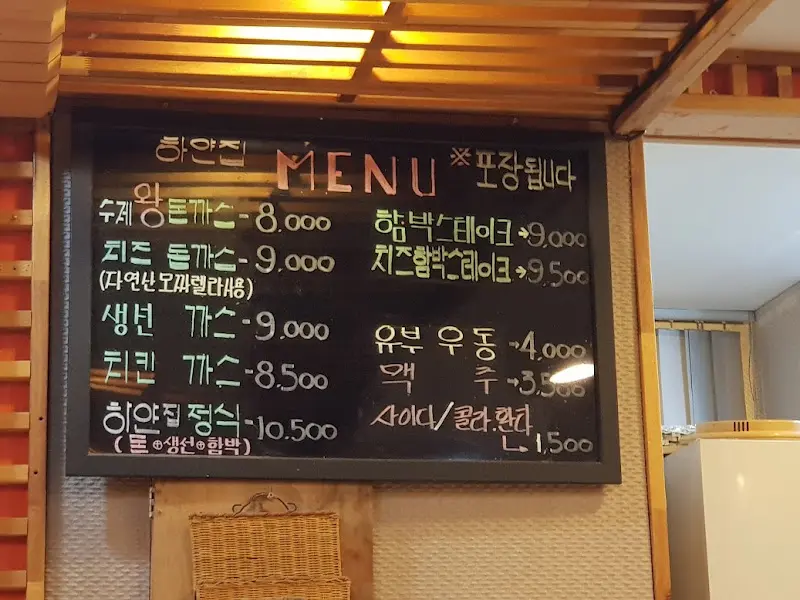 하얀집 MENU ※포장됩니다
수제 왕돈까스-8,000
치즈 돈까스-9,000
(자연산 모짜렐라 사용)
생선 까스-9,000
치킨 까스-8,500
하얀집정식-10,500
(돈+생선+함박)
함박스테이크→9,000
치즈함박스테이크→9,500
유부 우동→4,000
맥 주→3,500
사이다/콜라.환타
↳1,500